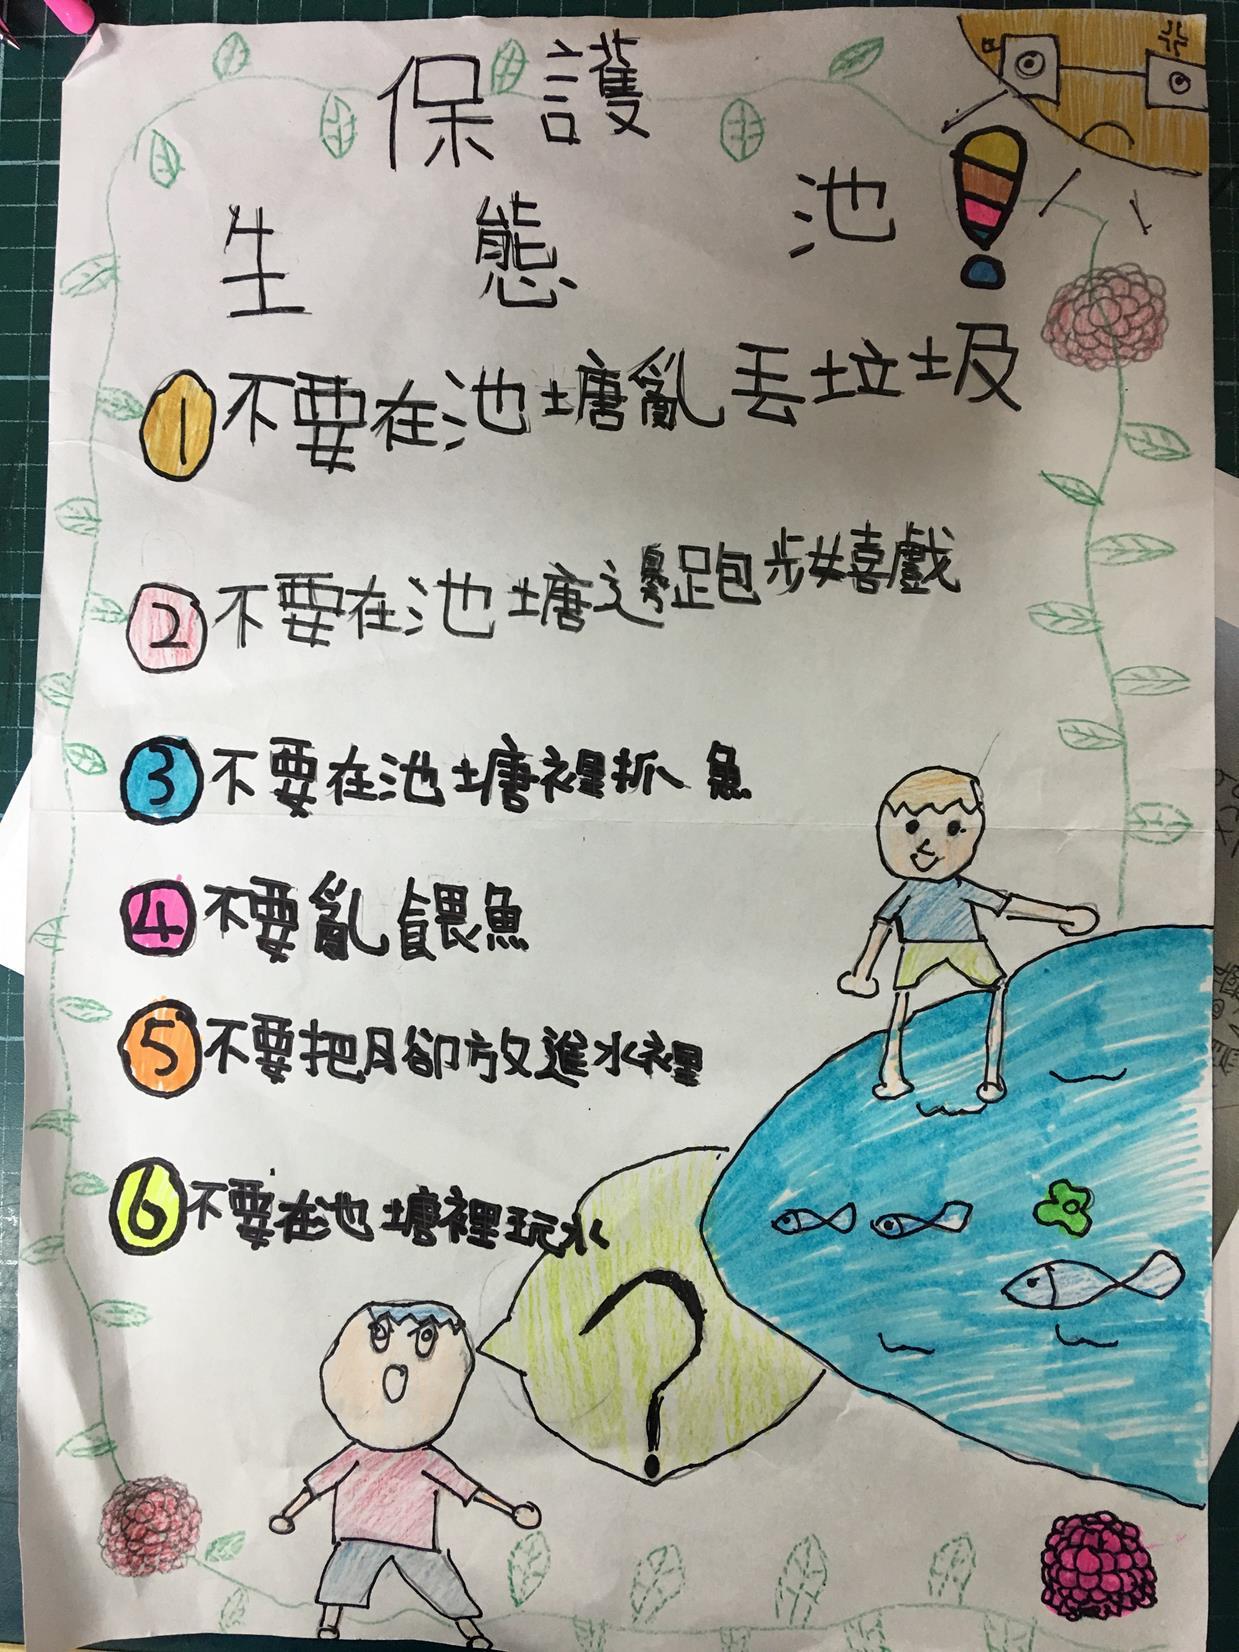 保護
生態池!
1 不要在池塘亂丟垃圾
2 不要在池塘邊跑步嬉戲
3 不要在池塘裡抓魚
4 不要亂餵魚
5 不要把腳放進水裡
6 不要在池塘裡玩水
?